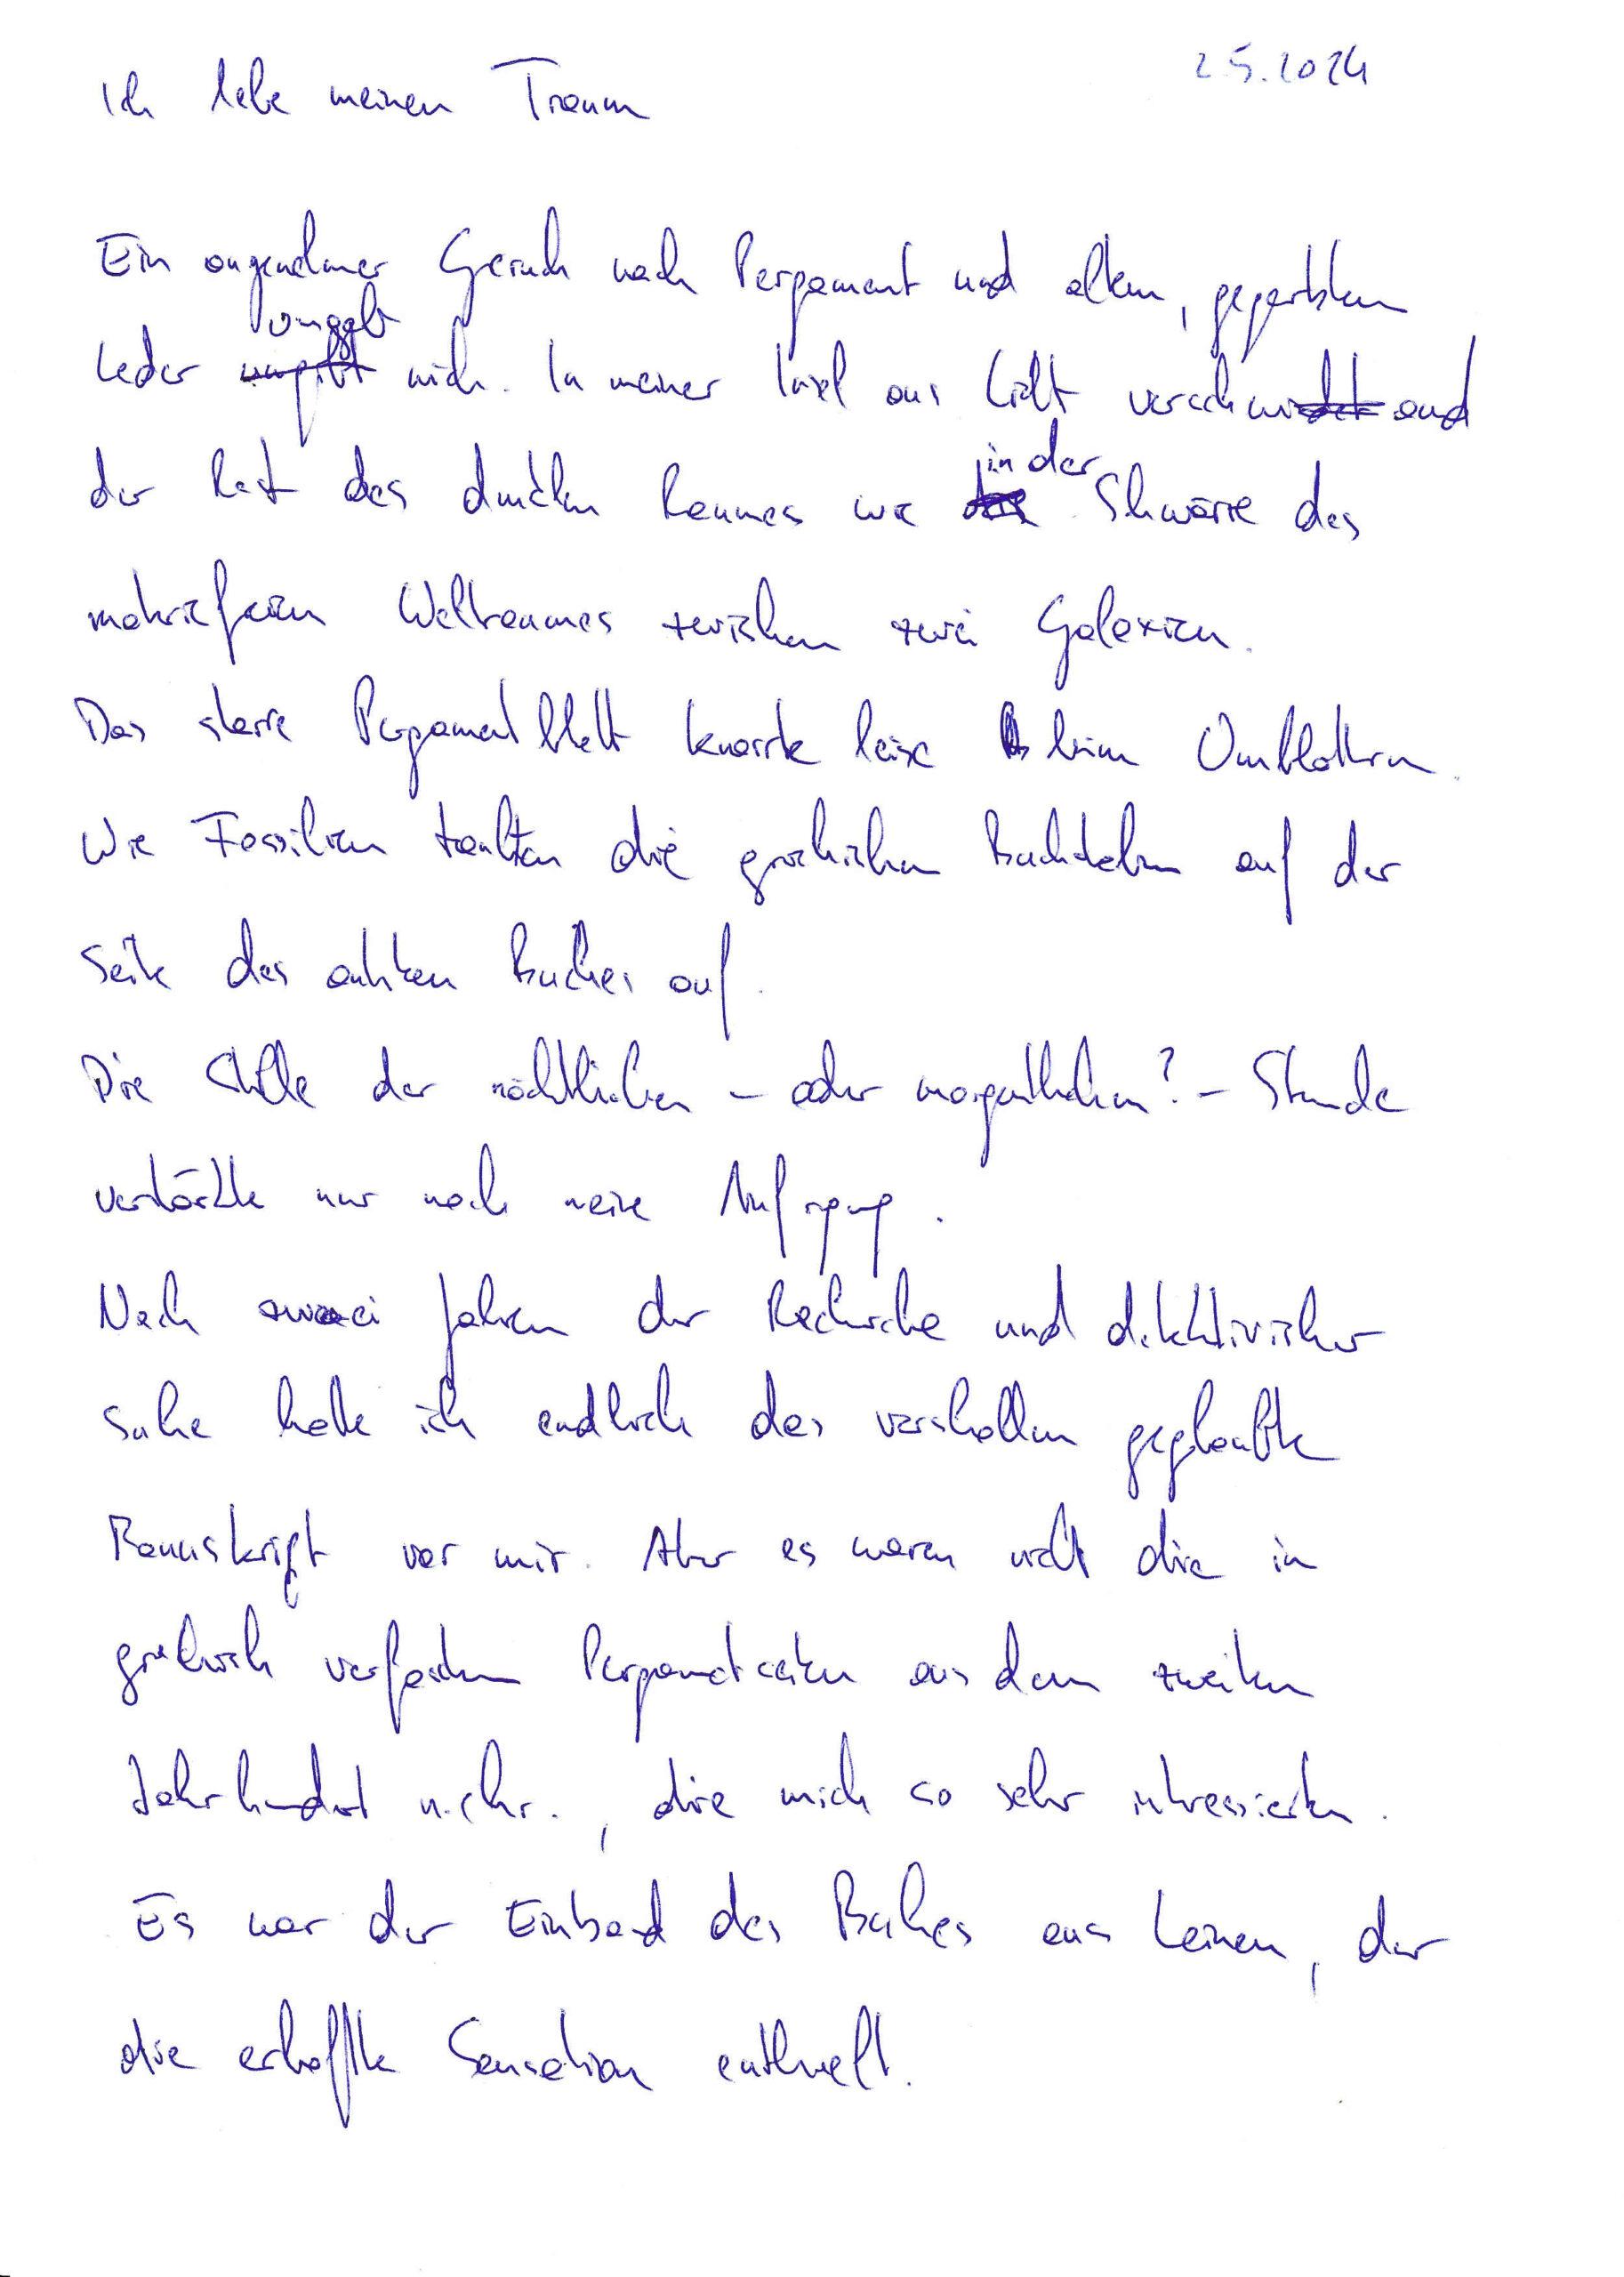 2.5.2024
Ich lebe meinen Traum
Ein angenehmer Geruch nach Pergament und altem, gegerbtem
umgab
Leder umgibt mich. In meiner Insel aus Licht verschwindet and
in der
der Rest des dunklen Raumes wie Schwärze des
materiefreien Weltraumes zwischen zwei Galaxien.
Das starre Pergamentblatt knarrte leise beim Umblättern.
Wie Fossilien tauchten die griechischen Buchstaben auf der
Seite des achten Buches auf.
Die Stille der nächtlichen – oder morgendlichen? – Stunde
verstärkte nur noch meine Aufregung.
Nach zwei Jahren der Recherche und detektivischer
Suche hatte ich endlich das verschollen geglaubte
Manuskript vor mir. Aber es waren nicht die in
griechisch verfassten Pergamentseiten aus dem zweiten
Jahrhundert n.Chr., die mich so sehr interessierten.
Es war der Einband des Buches aus Leinen, der
die erhoffte Sensation enthielt.